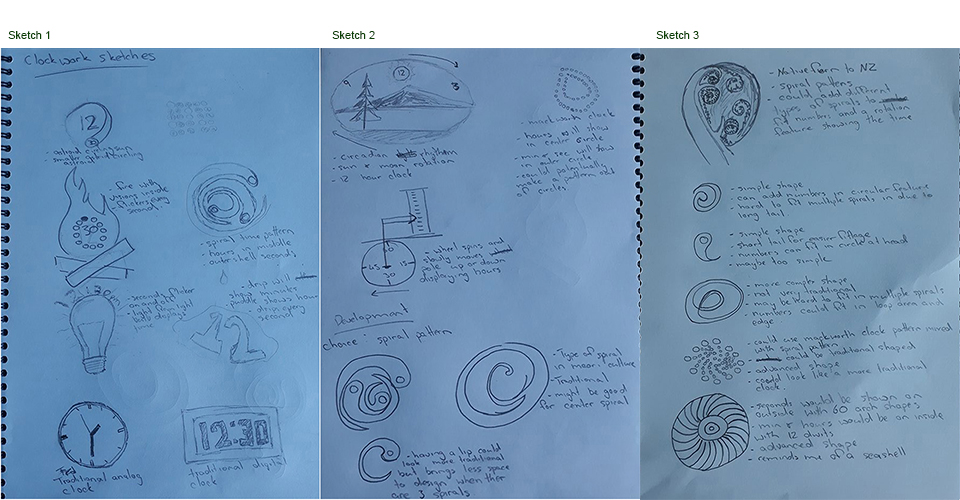 Sketch 1
Clockwork sketches
12
- fire with
30
- spiral time pattern
- hours in middle
- outer shell seconds
- drip will
seconds flicker
on and off
12
Traditional analog
clock
12:30
Traditional digital
clock
Sketch 2
12
9
3
- circadian rhythm
- sun & moon rotation
- 12 hour clock
- hours will show
in center circle
- min & sec will show
in outer circle
- could potentially
make a pattern out
of circles
60
45
15
30
- wheel spins and
slowly moves
pole up or down
displaying hours
Development
choice: spiral pattern
- Type of spiral
in maori culture
- Traditional
- might be good
for center spiral
- having a lip could
look more traditional
but brings less space
to design when ther
are 3 spirals
Sketch 3
- Native fern to NZ
- spiral patterns
- could add different
types of spirals to
fit numbers and a
feature showing the time
- simple shape
- can add numbers in circular feature
- hard to fit multiple spirals in due to
long tail
- simple shape
- short tail for
- numbers can fit in circle at head
- maybe too simple
- more complex shape
- not very traditional
- may be hard to fit in multiple spirals
- numbers could fit in loop area and
edge
- could use mackworth clock pattern mixed
with pattern
- could be traditional shaped
- advanced shape
- could look like a more traditional
clock
- seconds would be shown on
outside with 60 arch shapes
- min & hours would be on inside
with 12
- advanced shape
- reminds me of a seashell